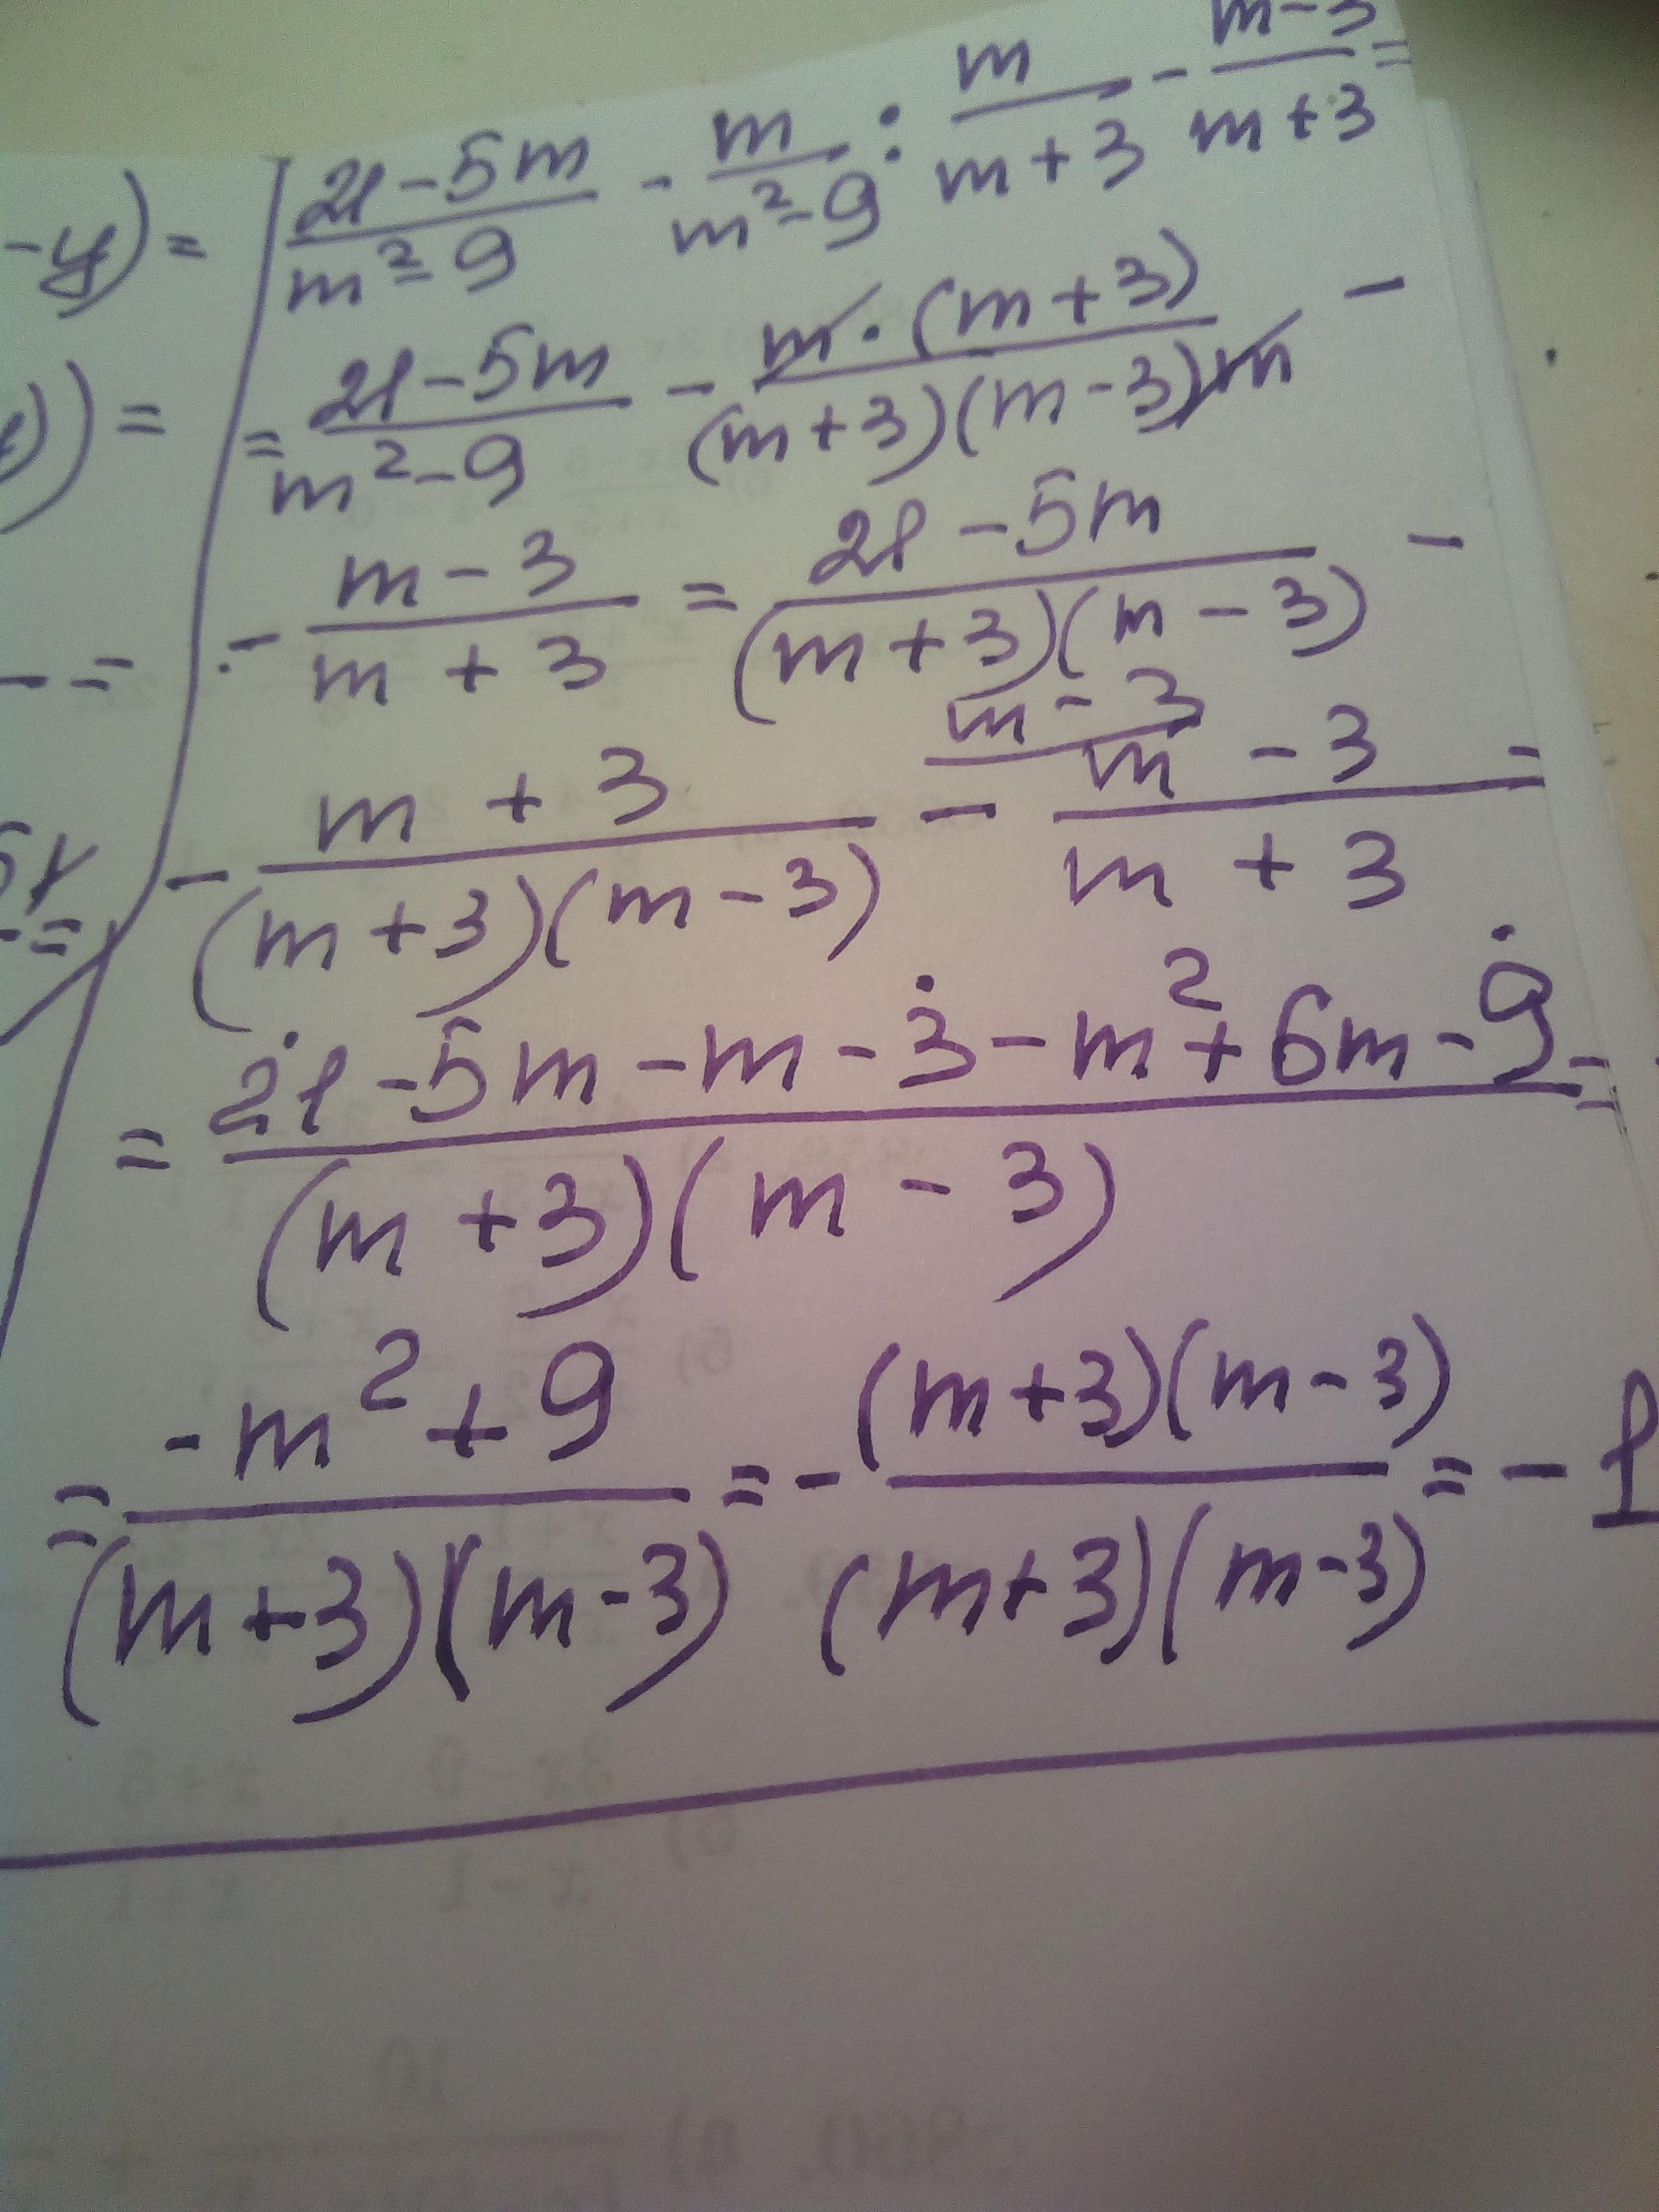 -y) =
(21-5m)/(m²-9) - m/(m²-9) : m/(m+3) - (m-3)/(m+3) =
)) =
= (21-5m)/(m²-9) - (m·(m+3))/((m+3)(m-3)m) -
- =
- (m-3)/(m+3) = (21-5m)/((m+3)(m-3)) -
m-3
- (m+3)/((m+3)(m-3)) - (m-3)/(m+3) =
= (21-5m-m-3-m²+6m-9)/((m+3)(m-3)) =
= (-m²+9)/((m+3)(m-3)) = - ((m+3)(m-3))/((m+3)(m-3)) = -1